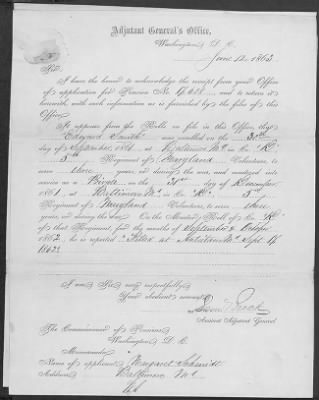 Adjutant General's Office,
Washington, D. C.
June 12, 1863
Sir:
I have the honor to acknowledge the receipt from your Office
of application for Pension No. and to return it
herewith, with such information as is furnished by the files of this
Office.
It appears from the Rolls on file in this Office, that
Smith was enrolled on the 30th
day of September 1861, at Baltimore Md in Co. "K",
5th Regiment of Maryland Volunteers, to
serve three years, or during the war, and mustered into
service as a Private on the 31st day of December
1861, at Baltimore Md, in Co. "K",
Regiment of Maryland Volunteers, to serve three
years, or during the war. On the Muster Roll of Co. "K"
of that Regiment, for the months of September & October
1862, he is reported "Killed at Antietam Md Sept 17
1862"
I am Sir, very respectfully,
Your obedient servant,
Assistant Adjutant General
The Commissioner of Pensions
Washington D. C.
Memoranda:
Name of applicant, Margaret Schmidt
Address, Baltimore Md